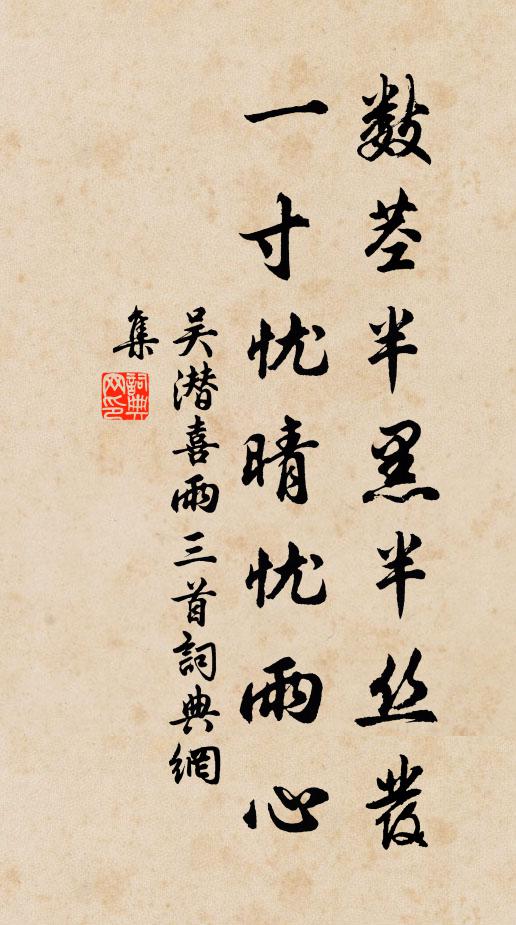 数茎半黑半丝發
一寸忧晴忧雨心
吴潜喜雨三首詞典網
集
詞典
网印